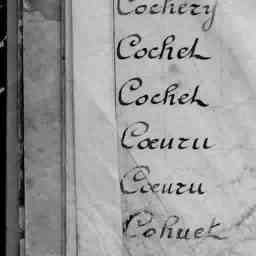 Cochery
Cochet
Cochet
Cœuru
Cœuru
Cohuet